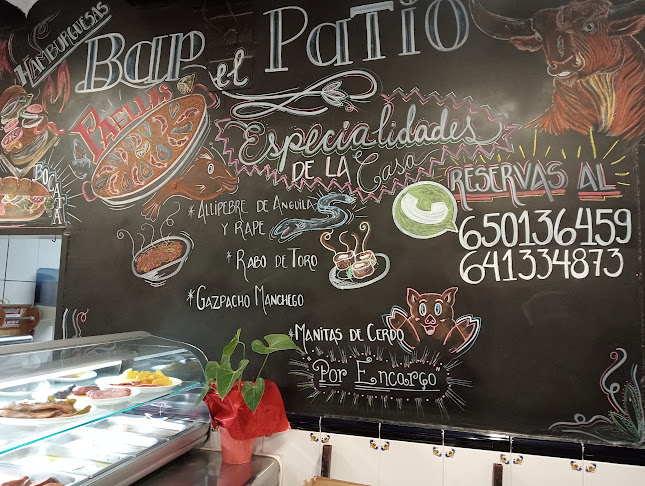 HAMBURGUESAS
Bar el Patio
PAELLAS
BOCATA
Especialidades
DE LA Casa
RESERVAS AL
650136459
641334873
* ALLIPEBRE DE ANGUILA
Y RAPE
* RABO DE TORO
* GAZPACHO MANCHEGO
* MANITAS DE CERDO
"Por Encargo"